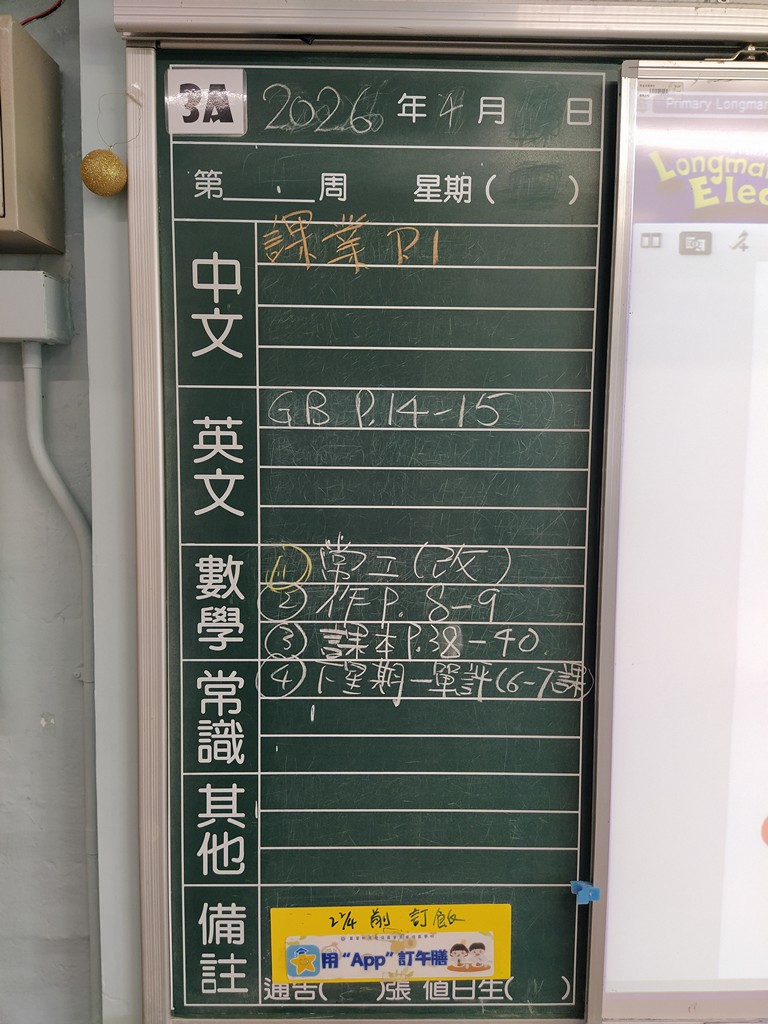 3A 2026 年 4 月 日
第 周 星期 ( )
中文
課業 P.1
英文
GB P.14-15
數學
① 常工(改)
② 作 P. 8-9
③ 課本 P.38-40
常識
④ 下星期一單評(6-7課)
其他
備註
22/4 前 訂飯
用“App”訂午膳
通告( )張 值日生( )
Primary Longman
Longman
Elec